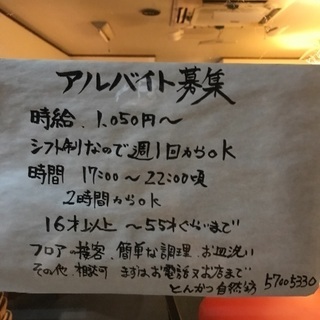 アルバイト募集
時給 1,050円〜
シフト制なので週1回からok
時間 17:00〜22:00頃
2時間からok
16才以上〜55才ぐらいまで
フロアー接客、簡単な調理、お皿洗い
その他、相談可 まずはお電話又お店まで
とんかつ自然坊 57005330